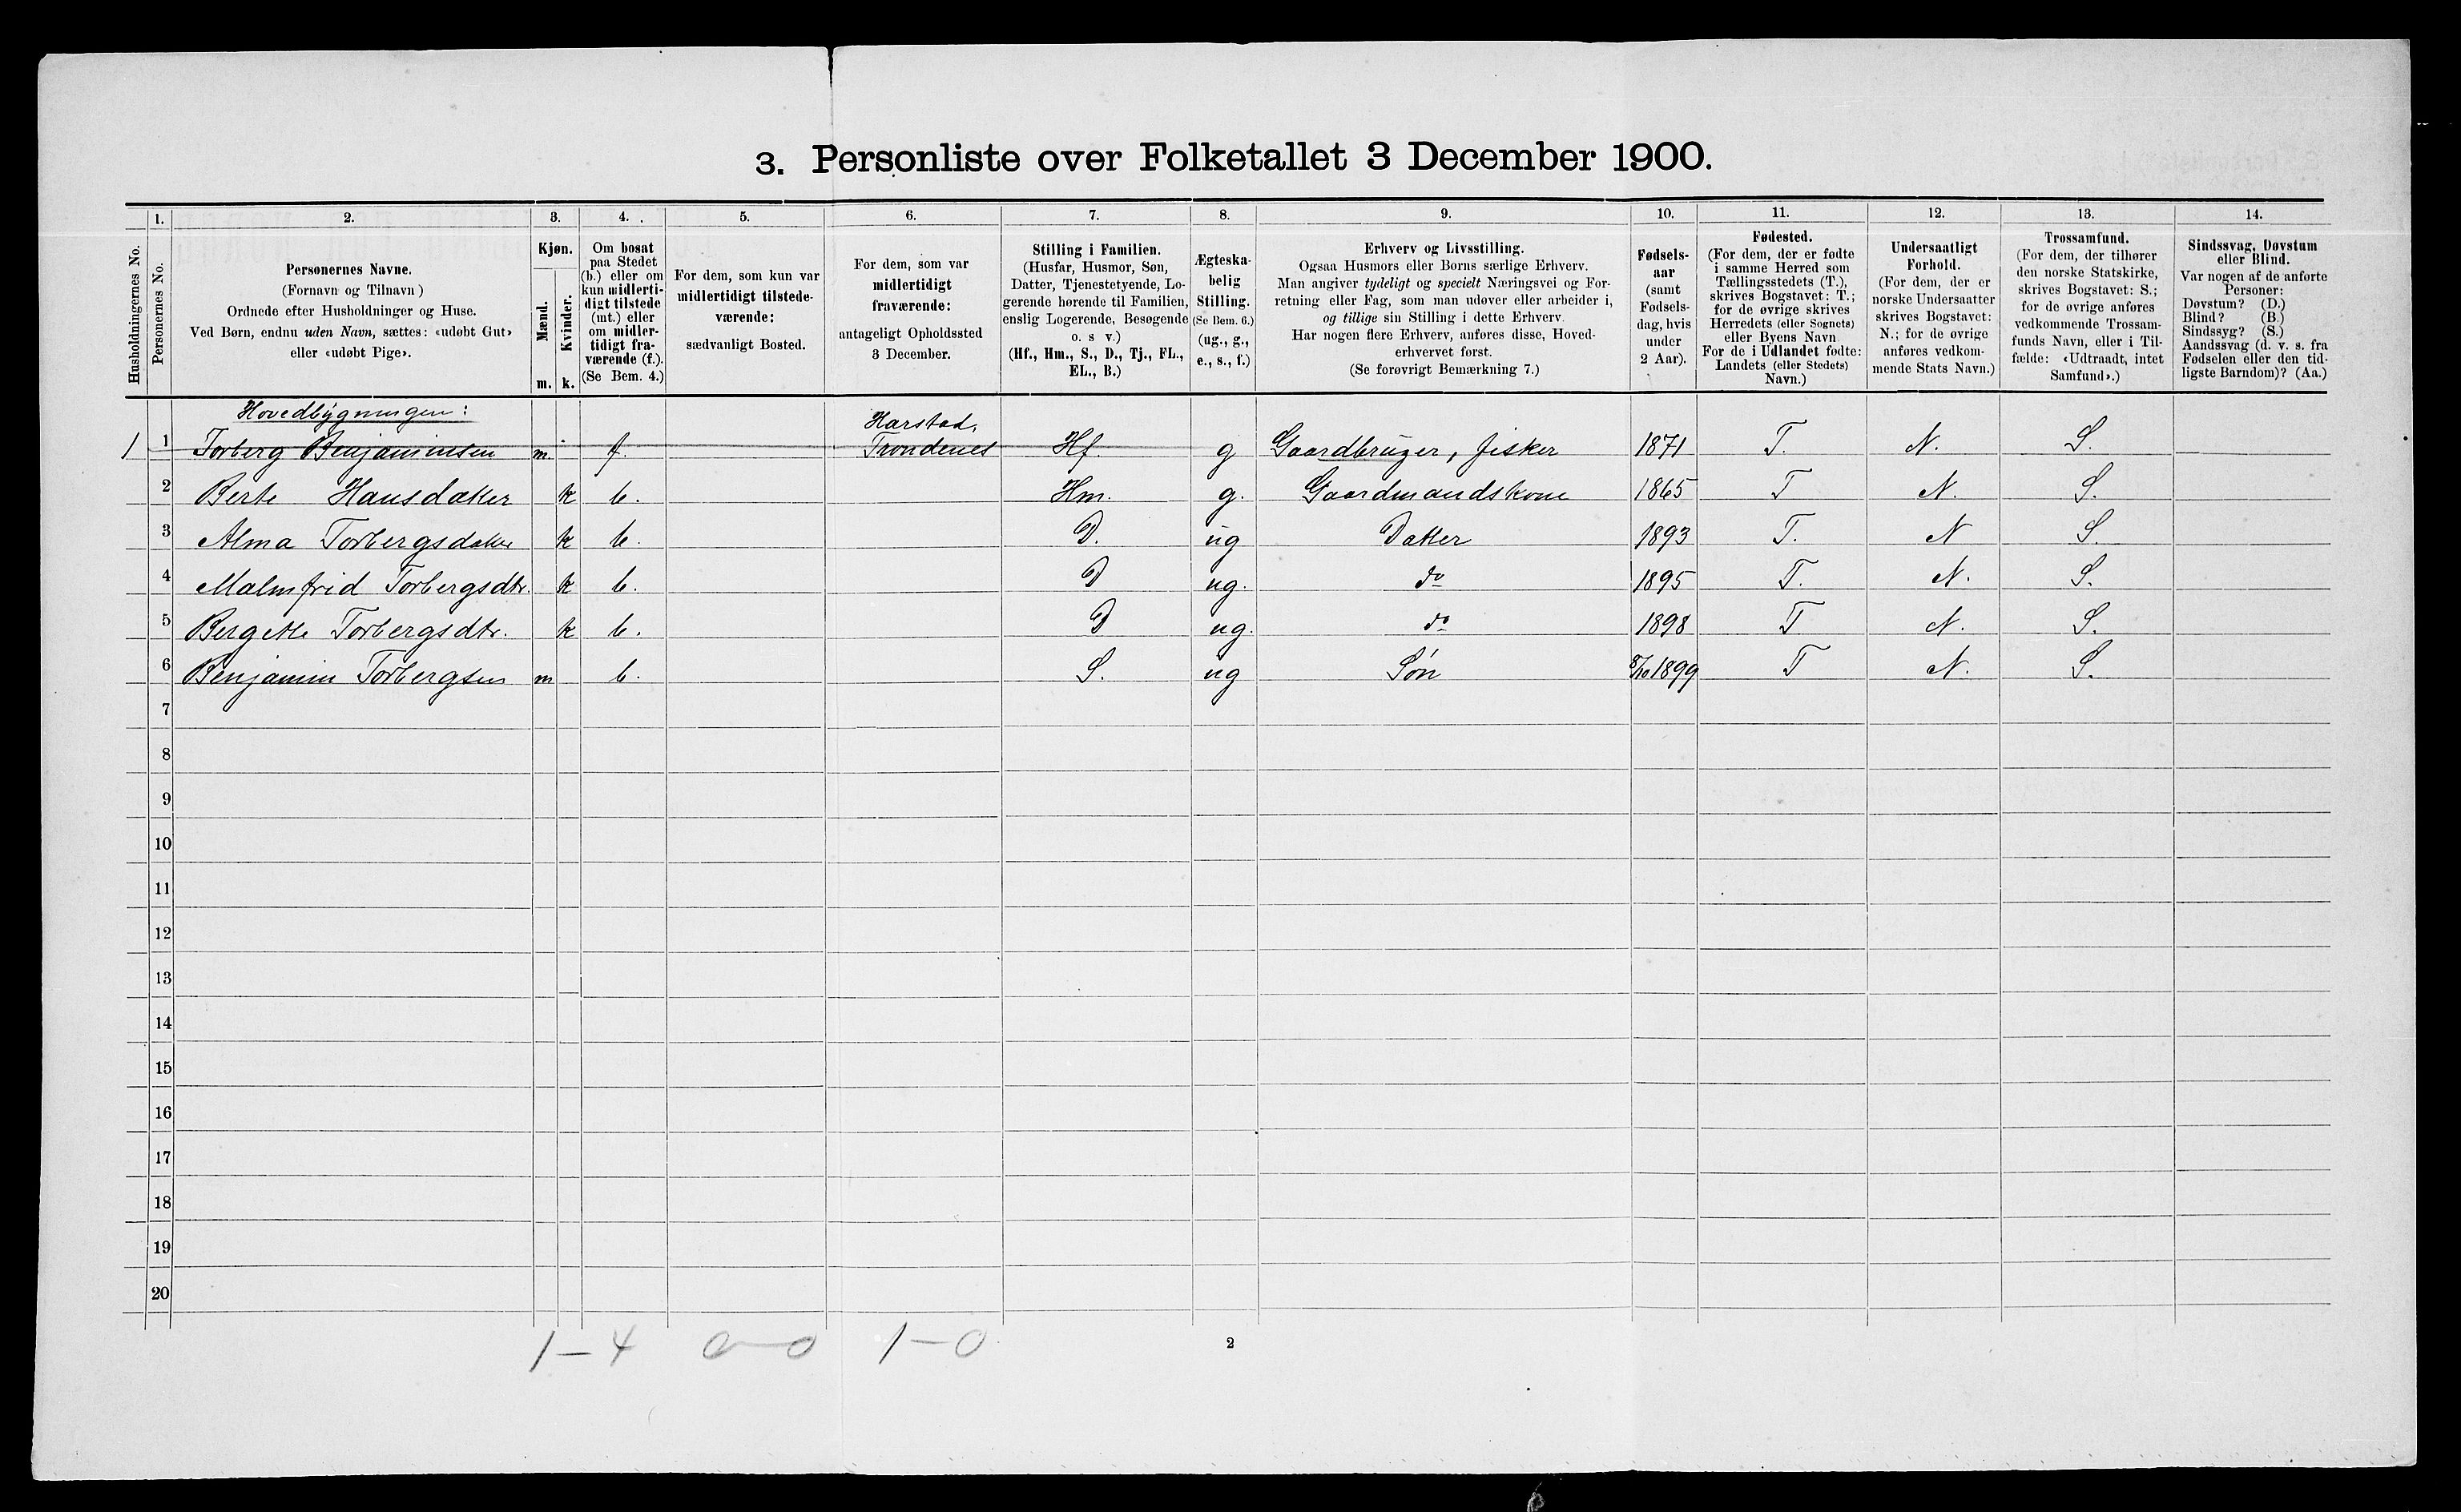 3. Personliste over Folketallet 3 December 1900.
1. 2. 3. 4. 5. 6. 7. 8. 9. 10. 11. 12. 13. 14.
Husholdningernes No.
Personernes No.
Personernes Navne.
(Fornavn og Tilnavn)
Ordnede efter Husholdninger og Huse.
Ved Børn, endnu uden Navn, sættes: «udøbt Gut»
eller «udøbt Pige».
Kjøn.
Mænd.
Kvinder.
m. k.
Om bosat
paa Stedet
(b.) eller om
kun midlerti-
digt tilstede
(mt.) eller
om midler-
tidigt fra-
værende (f.).
(Se Bem. 4.)
For dem, som kun var
midlertidigt tilstede-
værende:
sædvanligt Bosted.
For dem, som var
midlertidigt
fraværende:
antageligt Opholdssted
3 December.
Stilling i Familien.
(Husfar, Husmor, Søn,
Datter, Tjenestetyende, Lo-
gerende hørende til Familien,
enslig Logerende, Besøgende
o. s v.)
(Hf., Hm., S., D., Tj., FL.,
EL., B.)
Ægteska-
belig
Stilling.
(Se Bem. 6.)
(ug., g.,
e., s., f.)
Erhverv og Livsstilling.
Ogsaa Husmors eller Børns særlige Erhverv.
Man angiver tydeligt og specielt Næringsvei og For-
retning eller Fag, som man udøver eller arbeider i,
og tillige sin Stilling i dette Erhverv.
Har nogen flere Erhverv, anføres disse, Hoved-
erhvervet først.
(Se forøvrigt Bemærkning 7.)
Fødsels-
aar
(samt
Fødsels-
dag, hvis
under
2 Aar).
Fødested.
(For dem, der er fødte
i samme Herred som
Tællingsstedets (T.),
skrives Bogstavet: T.;
for de øvrige skrives
Herredets (eller Sognets)
eller Byens Navn
For de i Udlandet fødte:
Landets (eller Stedets)
Navn.)
Undersaatligt
Forhold.
(For dem, der er
norske Undersaatter
skrives Bogstavet:
N.; for de øvrige
anføres vedkom-
mende Stats Navn.)
Trossamfund.
(For dem, der tilhører
den norske Statskirke,
skrives Bogstavet: S.;
for de øvrige anføres
vedkommende Trossam-
funds Navn, eller i Til-
fælde: «Udtraadt, intet
Samfund».)
Sindssvag, Døvstum
eller Blind.
Var nogen af de anførte
Personer:
Døvstum? (D.)
Blind? (B.)
Sindssyg? (S.)
Aandssvag (d. v. s. fra
Fødselen eller den tid-
ligste Barndom)? (Aa.)
Hovedbygningen: Harstad,
1 1 Torberg Benjaminsen m f. Trondenes Hf. g Gaardbruger, fisker 1871 T. N. S.
2 Berte Hansdatter k b. Hm. g. Gaardmandskone 1865 T N. S.
3 Alma Torbergsdatter k b. D. ug Datter 1893 T. N S.
4 Malmfrid Torbergsdtr. k b. D ug. do 1895 T. N. S.
5 Bergette Torbergsdtr. k b. D ug. do 1898 T N. S.
6 Benjamin Torbergsen m b. S. ug Søn 8/10 1899 T N. S.
7
8
9
10
11
12
13
14
15
16
17
18
19
20
1-4 0-0 1-0 2